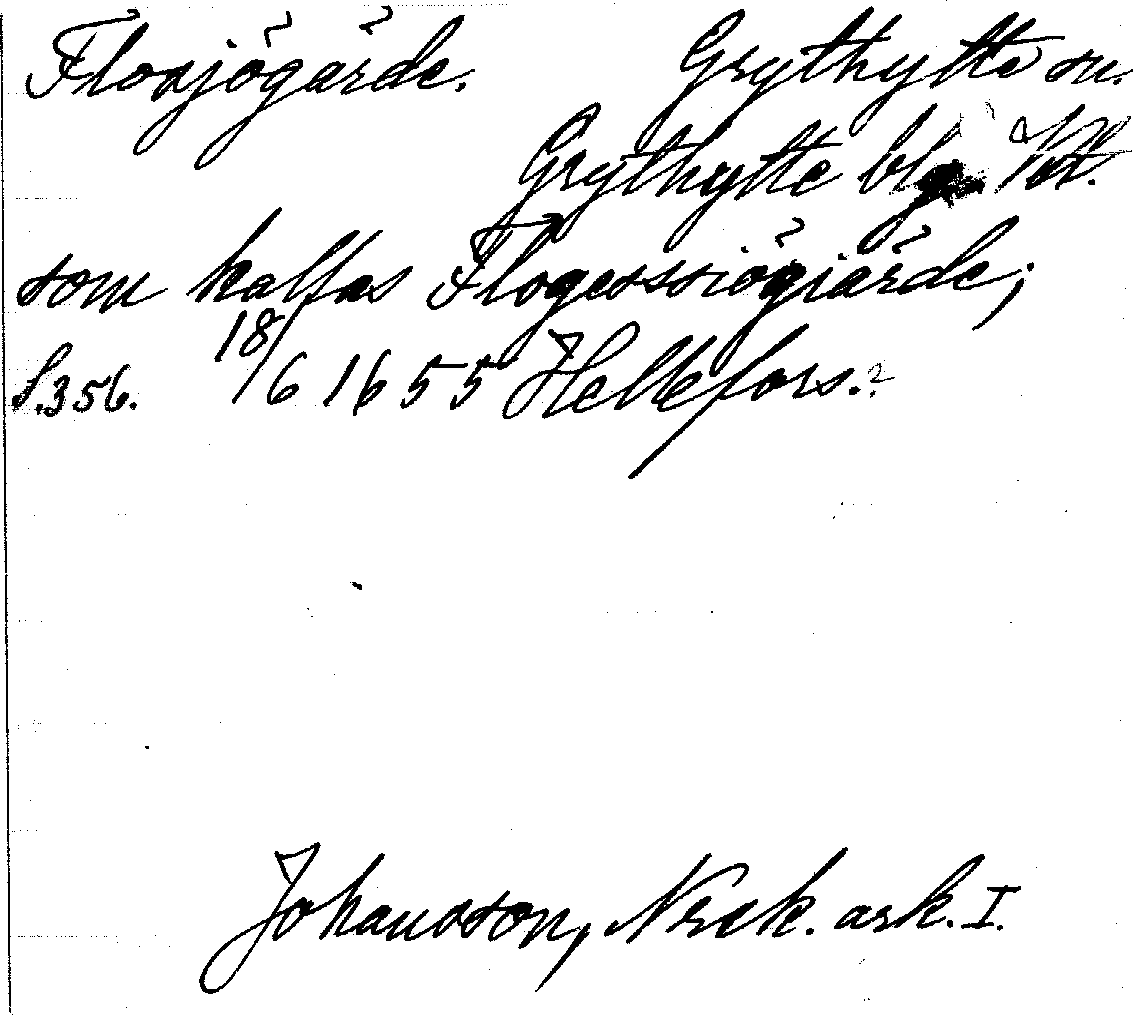 Flosjögärde. Grythytte sn.
Grythytte blg. Vstl.
som kallas Flogessiögiärde;
S. 356. 18/6 1655 Hellefors.?
Johansson, Norsk. ark. I.